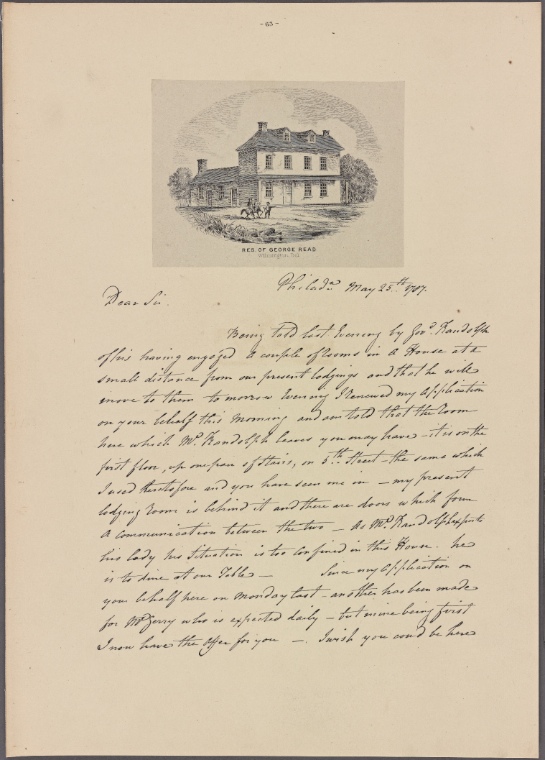 - 63 -
RES. OF GEORGE READ
Wilmington, Del.
Philada. May 25th 1787.
Dear Sir.
Being told last Evening by Govr. Randolph
of his having engaged a couple of rooms in a House at a
small distance from our present lodgings and that he will
move to them to morrow Evening I renewed my Application
on your behalf this Morning and am told that the Room
here which Mr. Randolph leaves you may have - it is on the
first floor, up one pair of Stairs, on 5th. Street - the same which
I used heretofore and you have seen me in - my present
lodging room is behind it and there are doors which form
a communication between the two - As Mr. Randolph expects
his lady his Situation is too confined in this House. he
is to dine at our Table - Since my Application on
your behalf here on Monday last - another has been made
for Mr. Gerry who is expected daily - but mine being first
I now have the Offer for you - . I wish you cou'd be here